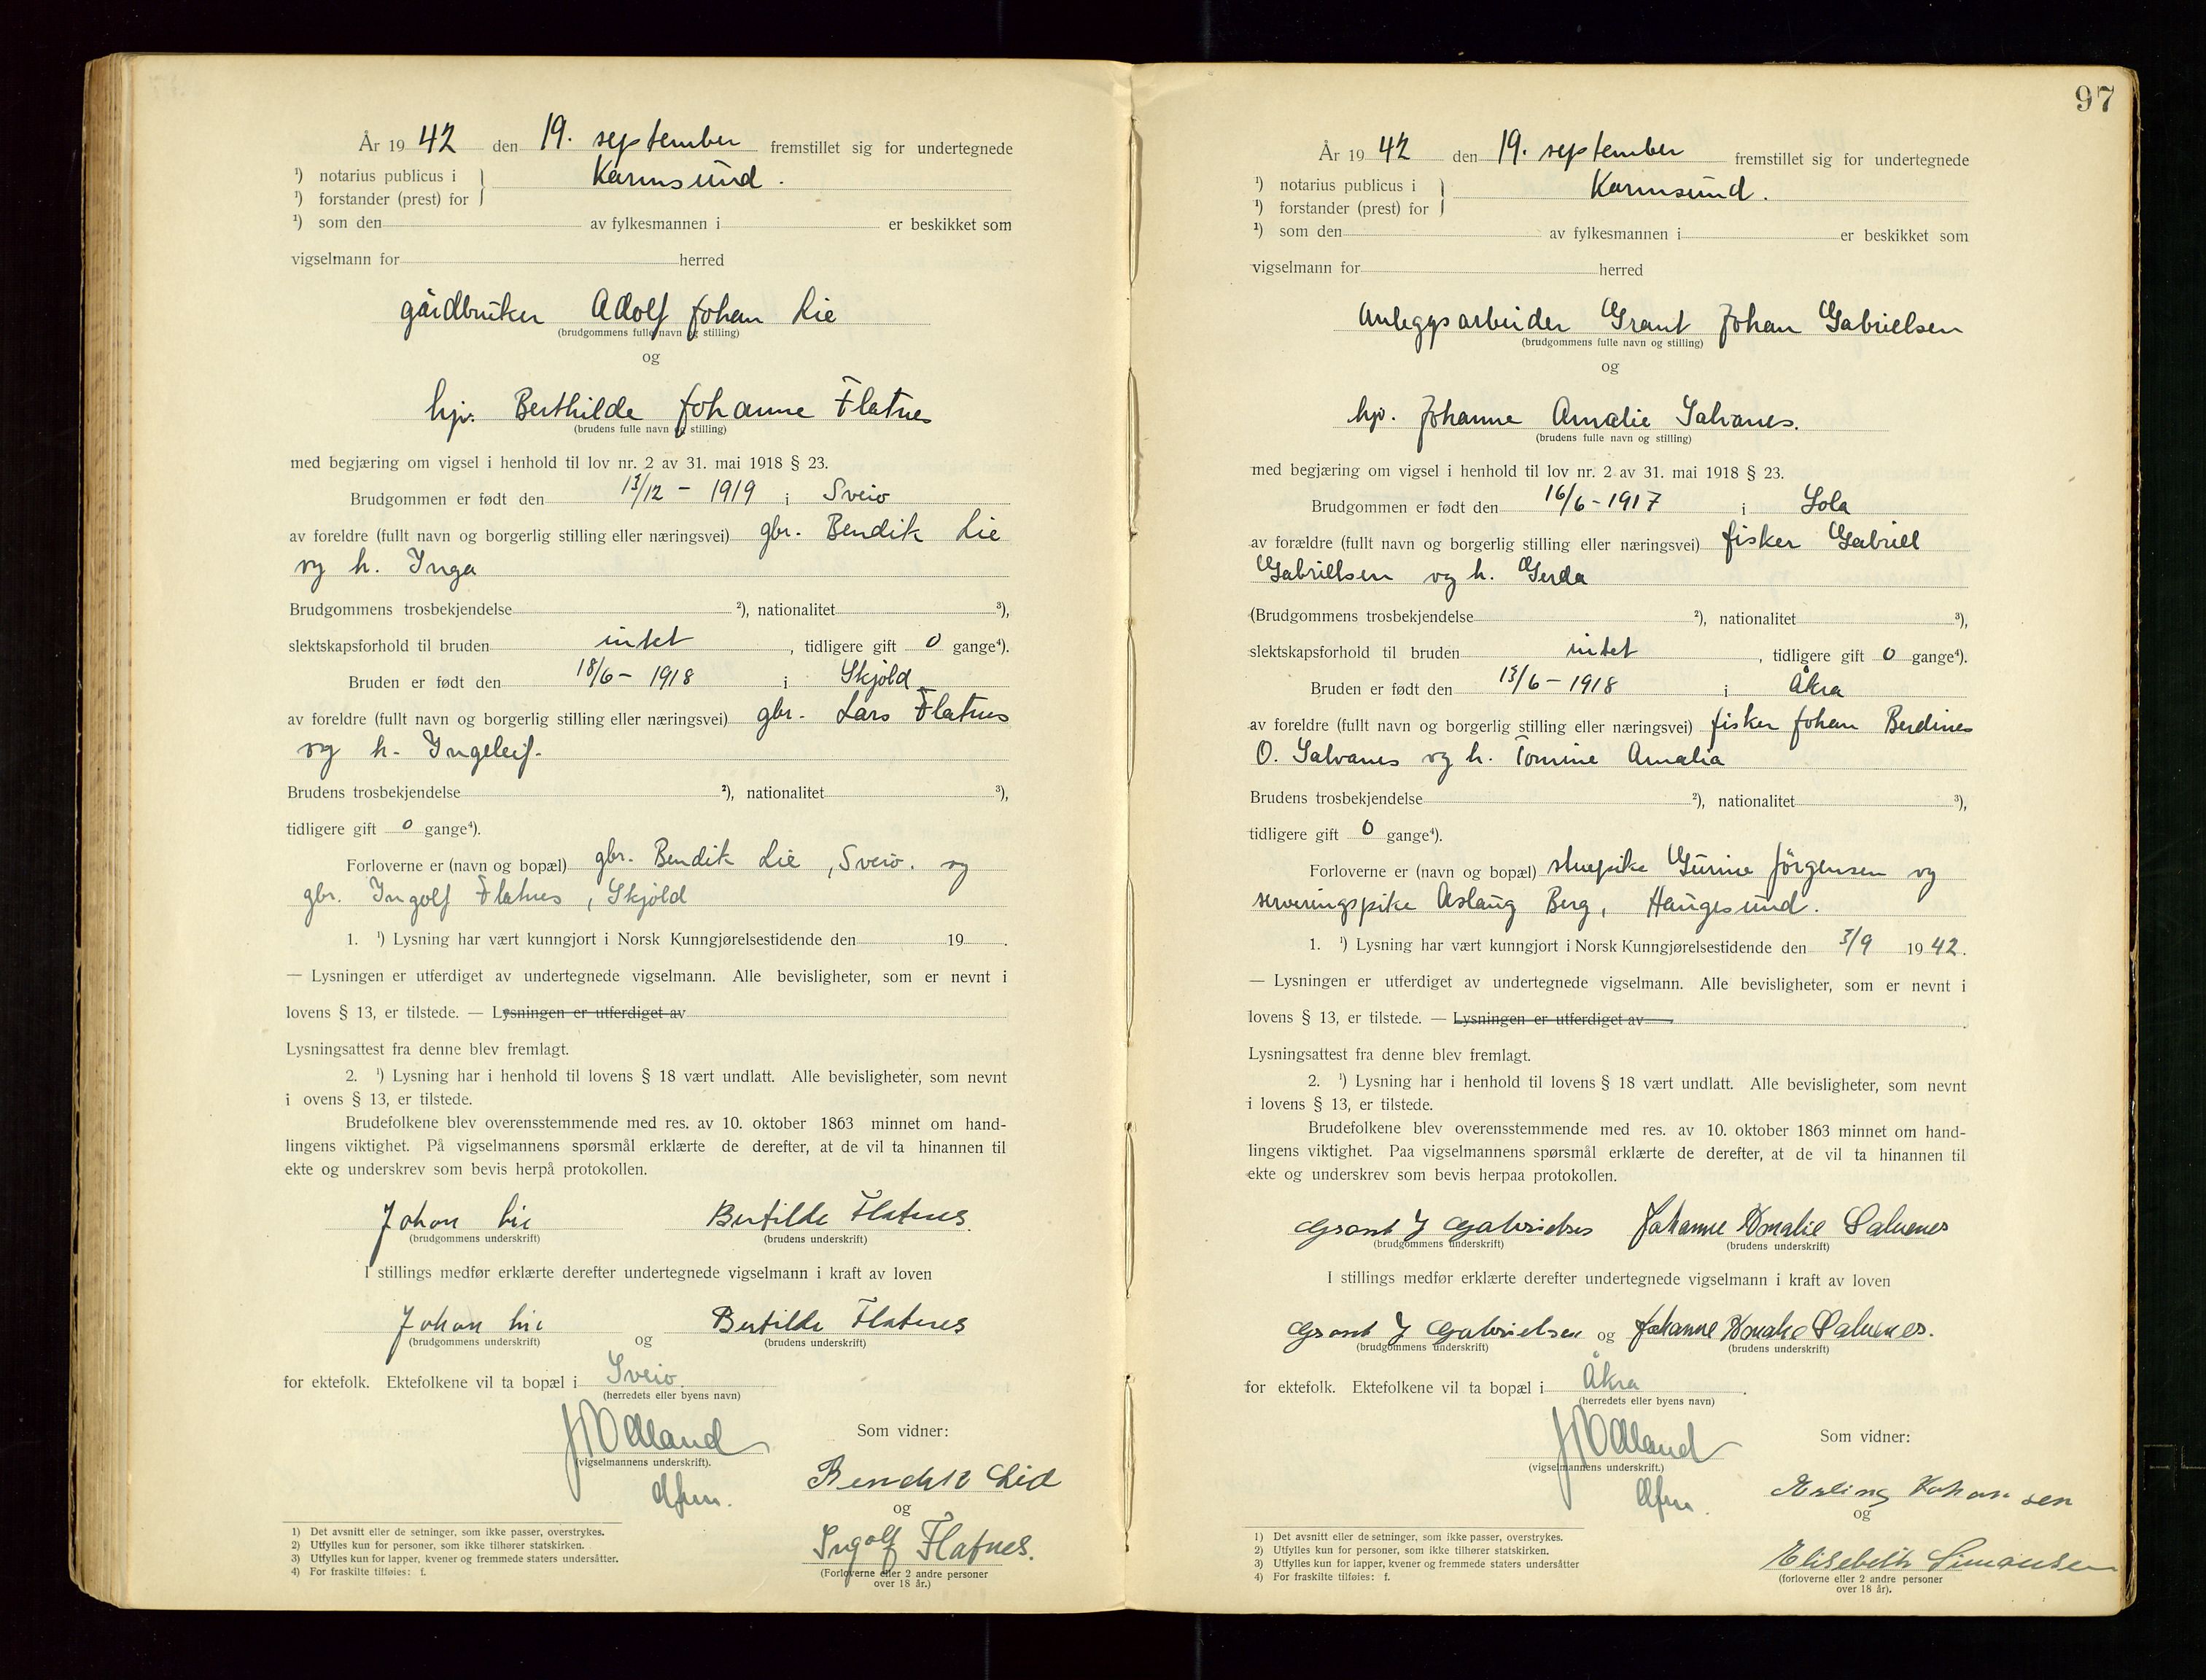 År 1942 den 19. september fremstillet sig for undertegnede
¹) notarius publicus i } Karmsund.
¹) forstander (prest) for
¹) som den av fylkesmannen i er beskikket som
vigselmann for herred
gårdbruker Adolf Johan Lie
(brudgommens fulle navn og stilling)
og
hjv. Berthilde Johanne Flatnes
(brudens fulle navn og stilling)
med begjæring om vigsel i henhold til lov nr. 2 av 31. mai 1918 § 23.
Brudgommen er født den 13/12 - 1919 i Sveio
av foreldre (fullt navn og borgerlig stilling eller næringsvei) gbr. Bendik Lie
og h. Inga
Brudgommens trosbekjendelse ²), nationalitet ³),
slektskapsforhold til bruden intet, tidligere gift 0 gange⁴).
Bruden er født den 18/6 - 1918 i Skjold
av foreldre (fullt navn og borgerlig stilling eller næringsvei) gbr. Lars Flatnes
og h. Ingeleif.
Brudens trosbekjendelse ²), nationalitet ³),
tidligere gift 0 gange⁴).
Forloverne er (navn og bopæl) gbr. Bendik Lie, Sveio. og
gbr. Ingolf Flatnes, Skjold
1. ¹) Lysning har vært kunngjort i Norsk Kunngjørelsestidende den 19 .
— Lysningen er utferdiget av undertegnede vigselmann. Alle bevisligheter, som er nevnt i
lovens § 13, er tilstede. — Lysningen er utferdiget av
Lysningsattest fra denne blev fremlagt.
2. ¹) Lysning har i henhold til lovens § 18 vært undlatt. Alle bevisligheter, som nevnt
i ovens § 13, er tilstede.
Brudefolkene blev overensstemmende med res. av 10. oktober 1863 minnet om hand-
lingens viktighet. På vigselmannens spørsmål erklærte de derefter, at de vil ta hinannen til
ekte og underskrev som bevis herpå protokollen.
Johan Lie Bertilde Flatnes.
(brudgommens underskrift) (brudens underskrift)
I stillings medfør erklærte derefter undertegnede vigselmann i kraft av loven
Johan Lie og Bertilde Flatnes
(brudgommens underskrift) (brudens underskrift)
for ektefolk. Ektefolkene vil ta bopæl i Sveio.
(herredets eller byens navn)
Som vidner:
(vigselmannens underskrift).
Bendik Lie
og
Ingolf Flatnes.
(Forloverne eller 2 andre personer
over 18 år.)
1) Det avsnitt eller de setninger, som ikke passer, overstrykes.
2) Utfylles kun for personer, som ikke tilhører statskirken.
3) Utfylles kun for lapper, kvener og fremmede staters undersåtter.
4) For fraskilte tilføies: f.
97
År 1942 den 19. september fremstillet sig for undertegnede
¹) notarius publicus i } Karmsund.
¹) forstander (prest) for
¹) som den av fylkesmannen i er beskikket som
vigselmann for herred
Anleggsarbeider Grant Johan Gabrielsen
(brudgommens fulle navn og stilling)
og
hjv. Johanne Amalie Salvanes.
(brudens fulle navn og stilling)
med begjæring om vigsel i henhold til lov nr. 2 av 31. mai 1918 § 23.
Brudgommen er født den 16/6 - 1917 i Sola
av forældre (fullt navn og borgerlig stilling eller næringsvei) fisker Gabriel
Gabrielsen og h. Gerda
(Brudgommens trosbekjendelse ²), nationalitet ³),
slektskapsforhold til bruden intet, tidligere gift 0 gange⁴).
Bruden er født den 13/6 - 1918 i Åkra
av foreldre (fullt navn og borgerlig stilling eller næringsvei) fisker Johan Berdines
O. Salvanes og h. Tomine Amalia
Brudens trosbekjendelse ²), nationalitet ³),
tidligere gift 0 gange⁴).
Forloverne er (navn og bopæl) stuepike Gurine Jörgensen og
serveringspike Aslaug Berg, Haugesund.
1. ¹) Lysning har vært kunngjort i Norsk Kunngjørelsestidende den 3/9 1942.
— Lysningen er utferdiget av undertegnede vigselmann. Alle bevisligheter, som er nevnt i
lovens § 13, er tilstede. — Lysningen er utferdiget av
Lysningsattest fra denne blev fremlagt.
2. ¹) Lysning har i henhold til lovens § 18 vært undlatt. Alle bevisligheter, som nevnt
i lovens § 13, er tilstede.
Brudefolkene blev overensstemmende med res. av 10. oktober 1863 minnet om hand-
lingens viktighet. Paa vigselmannens spørsmål erklærte de derefter, at de vil ta hinannen til
ekte og underskrev som bevis herpaa protokollen.
Grant J Gabrielsen Johanne Amalie Salvenes
(brudgommens underskrift) (brudens underskrift)
I stillings medfør erklærte derefter undertegnede vigselmann i kraft av loven
Grant J Gabrielsen og Johanne Amalie Salvenes.
(brudgommens underskrift) (brudens underskrift)
for ektefolk. Ektefolkene vil ta bopæl i Åkra.
(herredets eller byens navn)
Som vidner:
(vigselmannens underskrift.)
Erling Johansen
og
Elisebeth Simonsen
(forloverne eller 2 andre personer
over 18 år).
1) Det avsnitt eller de setninger, som ikke passer, overstrykes.
2) Utfylles kun for personer, som ikke tilhører statskirken.
3) Utfylles kun for lapper, kvener og fremmede staters undersåtter
4) For fraskilte tilføies: f.